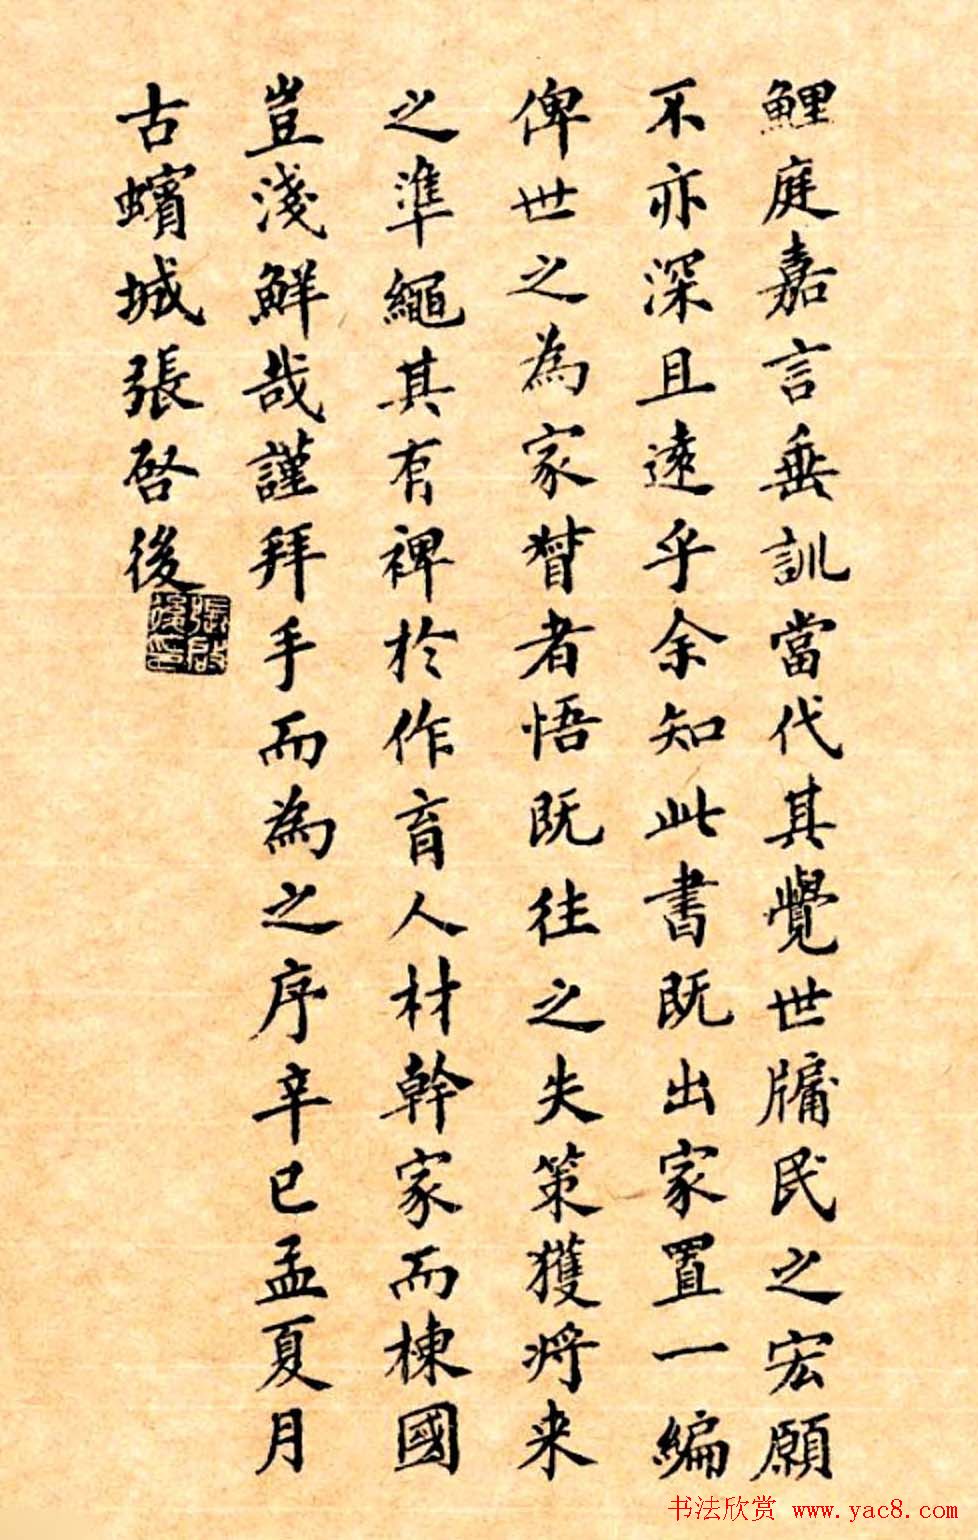 鯉庭嘉言垂訓當代其覺世牖民之宏願
不亦深且遠乎余知此書既出家置一編
俾世之為家督者悟既往之失策獲將来
之準繩其有裨於作育人材幹家而棟國
豈淺鮮哉謹拜手而為之序辛巳孟夏月
古蠙城張啓後
張啟後印
书法欣赏 www.yac8.com